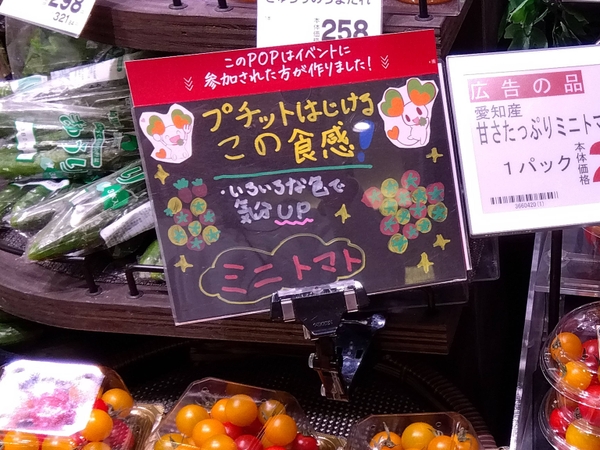 298
321
258
本体価格
このPOPはイベントに
参加された方が作りました!
プチッとはじける
この食感!
・いろいろな色で
気分UP
ミニトマト
広告の品
愛知産
甘さたっぷりミニトマ
1パック
本体価格